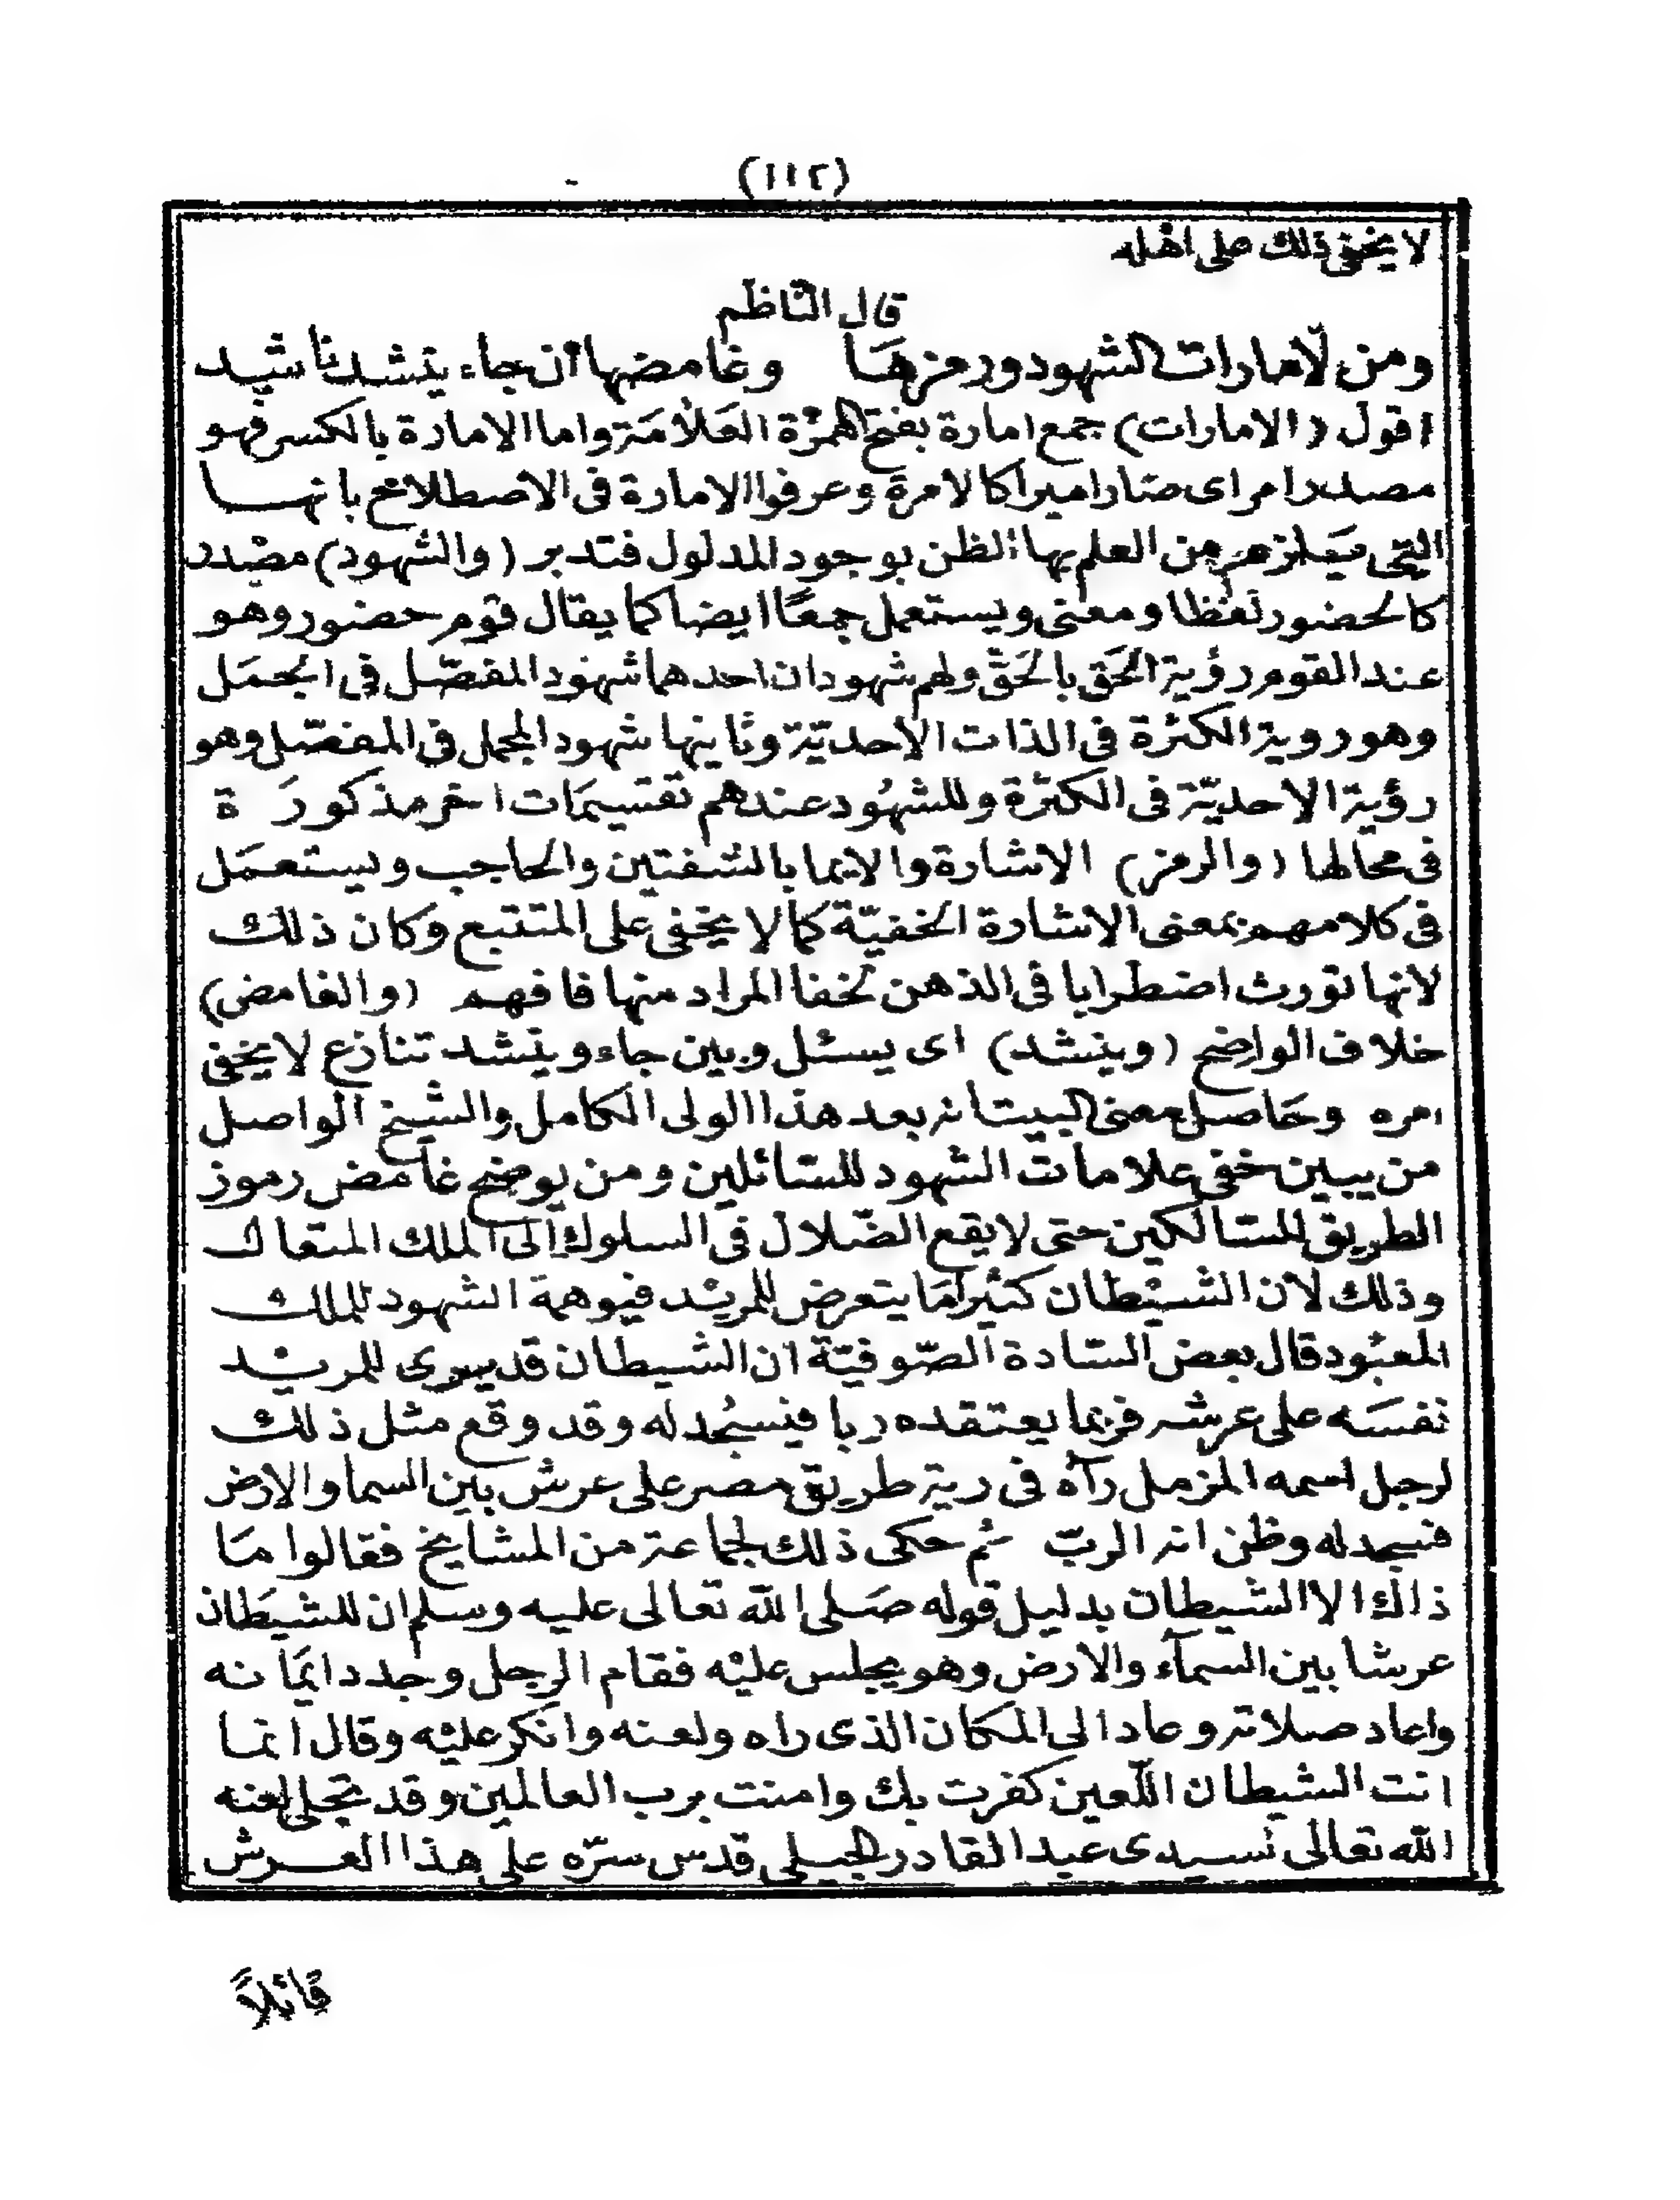 (١١٢)
لا يخفى ذلك على اهله
قال الناظم
ومن لامارات الشهود ورمزها وغامضها ان جاء ينشد ناشد
اقول (الامارات) جمع امارة بفتح الهمزة العلامة واما الامارة بالكسر فهو
مصدر امر اى صار اميرا كالامرة وعرفوا الامارة فى الاصطلاح بانها
التى يلزم من العلم بها الظن بوجود المدلول فتدبر (والشهود) مصدر
كالحضور لفظا ومعنى ويستعمل جمعًا ايضا كما يقال قوم حضور وهو
عند القوم رؤية الحَق بالحَقّ ولهم شهودان احدهما شهود المفصّل فى المجمَل
وهو روية الكثرة فى الذات الاحديّة وثانيها شهود المجمل فى المفصّل وهو
رؤية الاحديّة فى الكثرة وللشهُود عندهم تقسيمَات اخر مذكورَة
فى محالها (والرمز) الاشارة والايما بالشفتين والحاجب ويستعمَل
فى كلامهم بمعنى الاشارة الخفيّة كما لا يخفى على المتتبع وكان ذلك
لانها تورث اضطرابا فى الذهن لخفا المراد منها فافهم (والغامض)
خلاف الواضح (وينشد) اى يسئل وبين جاء وينشد تنازع لا يخفى
امره وحَاصل معنى البيت انه بعد هذا الولى الكامل والشيخ الواصل
من يبين خفى علامات الشهود للسائلين ومن يوضح غامض رموز
الطريق للسالكين حتى لا يقع الضّلال فى السلوك الى الملك المتعال
وذلك لان الشيْطان كثيرامَا يتعرض للمريْد فيوهمة الشهود للملك
المعبُود قال بعض السّادة الصّوفيّة ان الشيطان قد يرى للمريْد
نفسَه على عرشه فربما يعتقده ربا فيسجُد له وقد وقع مثل ذلك
لرجل اسمه المزمل رآه فى رية طريق مصر على عرش بين السما والارض
فسجد له وظن انه الربّ ثم حكى ذلك لجماعة من المشايخ فقالوا مَا
ذاك الا الشيطان بدليل قوله صَلى الله تعالى عليه وسلم ان للشيَطان
عرشا بين السمآء والارض وهو يجلس عليْه فقام الرجل وجدد ايمَانه
واعاد صلاته وعاد الى المكان الذى راه ولعنه وانكر عليْه وقال انما
انت الشيطان اللّعين كفرت بك وامنت برب العالمين وقد تجلى لعنه
الله تعالى لسيدى عبد القادر الجيلى قدس سرّه على هذا العرش
قائلاً